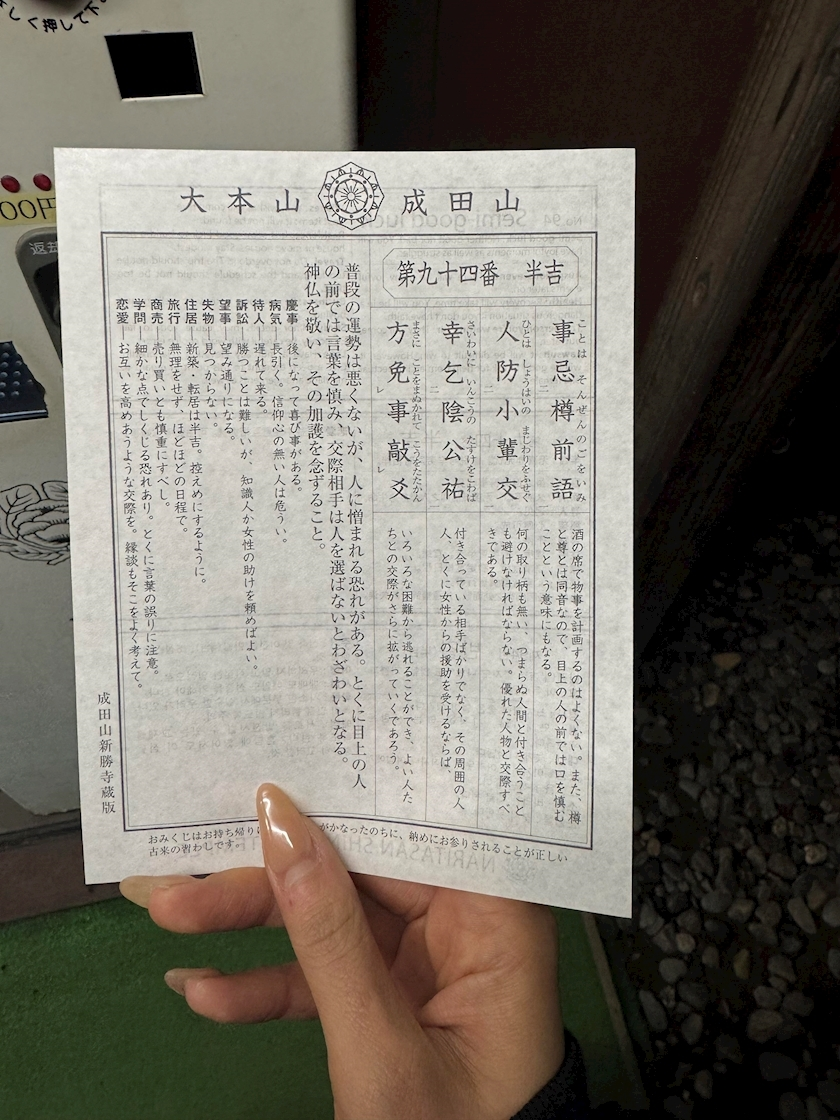 く押して下
00円
返却
大本山 成田山
第九十四番 半吉
事忌樽前語
ことは そんぜんのごをいみ
酒の席で物事を計画するのはよくない。また、樽
と尊とは同音なので、目上の人の前では口を慎む
ことという意味にもなる。
人防小輩交
ひとは しょうはいの まじわりをふせぐ
何の取り柄も無い、つまらぬ人間と付き合うこと
も避けなければならない。優れた人物と交際すべ
きである。
幸乞陰公祐
さいわいに いんこうの たすけをこわば
付き合っている相手ばかりでなく、その周囲の人
人、とくに女性からの援助を受けるならば、
方免事敲爻
まさに ことをまぬかれて こうをたたかん
いろいろな困難から逃れることができ、よい人た
ちとの交際がさらに拡がっていくであろう。
普段の運勢は悪くないが、人に憎まれる恐れがある。とくに目上の人
の前では言葉を慎み、交際相手は人を選ばないとわざわいとなる。
神仏を敬い、その加護を念ずること。
慶事―後になって喜び事がある。
病気―長引く。信仰心の無い人は危うい。
待人―遅れて来る。
訴訟―勝つことは難しいが、知識人か女性の助けを頼めばよい。
望事―望み通りになる。
失物―見つからない。
住居―新築・転居は半吉。控えめにするように。
旅行―無理をせず、ほどほどの日程で。
商売―売り買いとも慎重にすべし。
学問―細かな点でしくじる恐れあり。とくに言葉の誤りに注意。
恋愛―お互いを高めあうような交際を。縁談もそこをよく考えて。
成田山新勝寺蔵版
おみくじはお持ち帰り がかなったのちに、納めにお参りされることが正しい
古来の習わしです。
No.94 Semi-good luck
NARITASAN SHIN